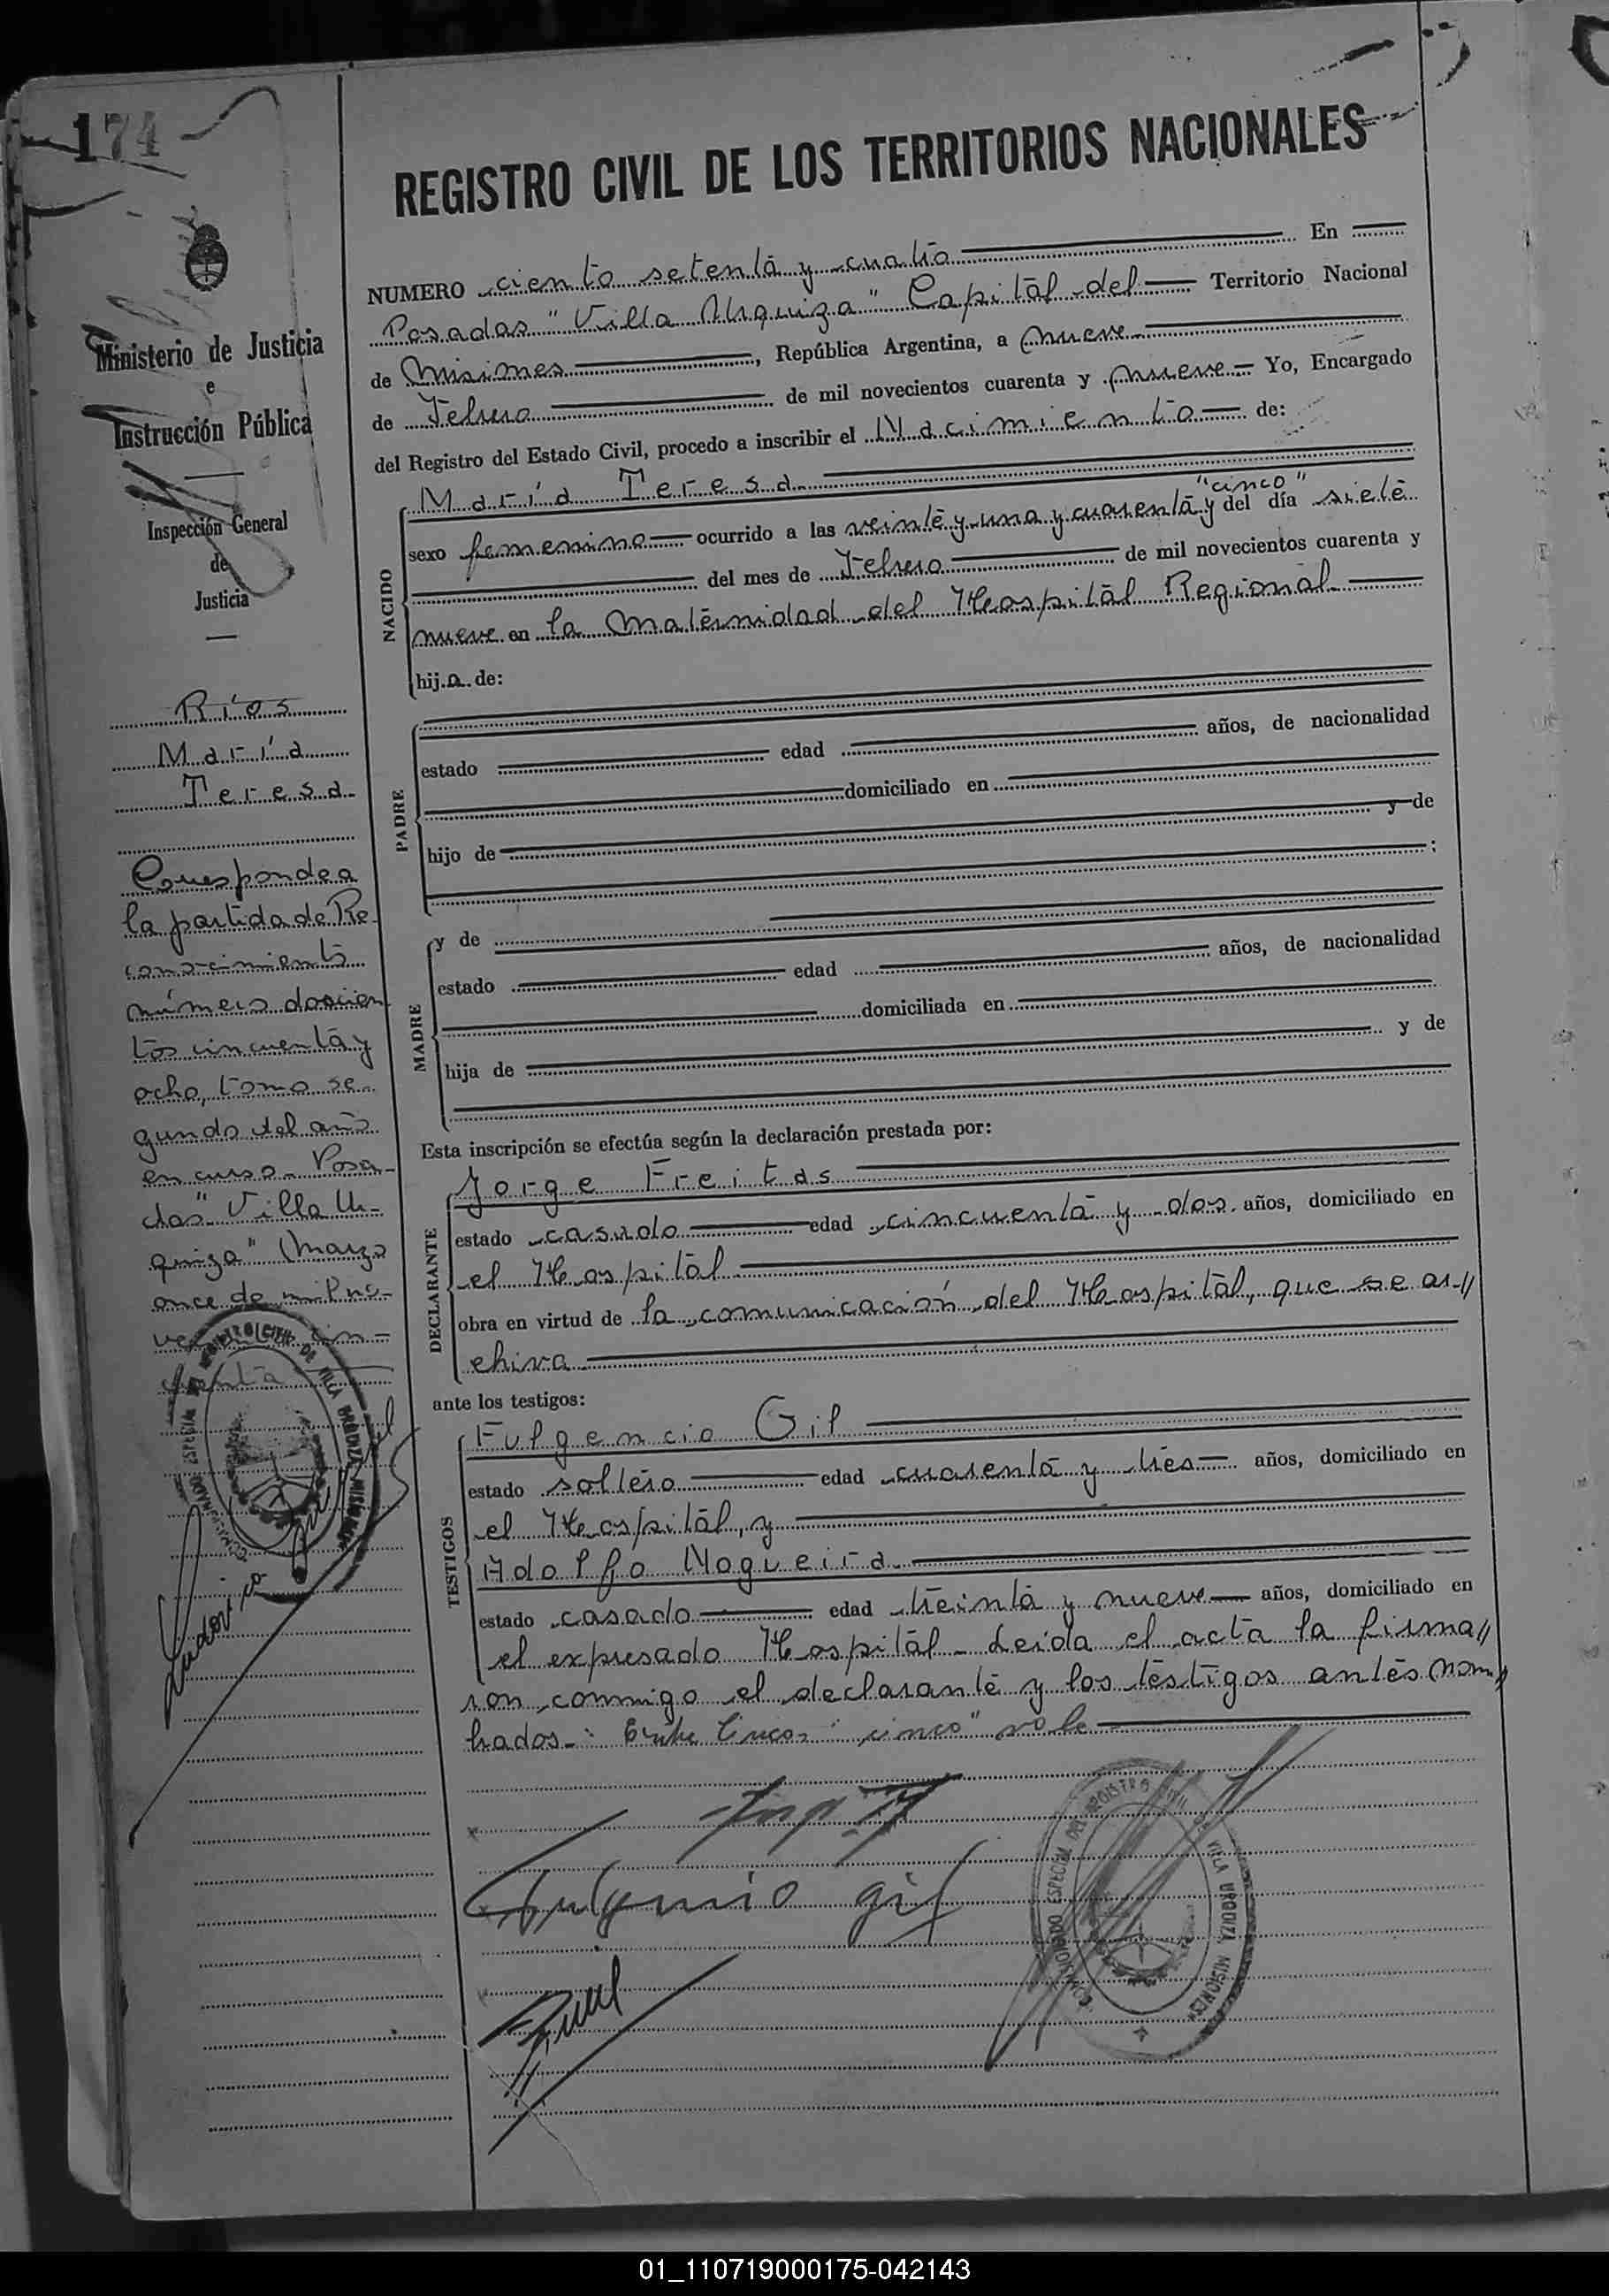 174
REGISTRO CIVIL DE LOS TERRITORIOS NACIONALES
Ministerio de Justicia
e
Instrucción Pública
Inspección General
de
Justicia
Ríos
María
Teresa
Corresponde a
la partida de Re-
conocimiento
número doscien
tos cincuenta y
ocho, tomo se-
gundo del año
en curso. Posa-
das "Villa Ur-
quiza" (Marzo
once de mil no-
NUMERO ciento setenta y cuatro En
Posadas "Villa Urquiza" Capital del Territorio Nacional
de Misiones, República Argentina, a nueve
de Febrero de mil novecientos cuarenta y nueve Yo, Encargado
del Registro del Estado Civil, procedo a inscribir el Nacimiento de:
NACIDO
María Teresa
"cinco"
sexo femenino ocurrido a las veinte y una y cuarenta y del día siete
del mes de Febrero de mil novecientos cuarenta y
nueve en la Maternidad del Hospital Regional
hija de:
PADRE
estado edad años, de nacionalidad
domiciliado en
hijo de y de
;
MADRE
y de
estado edad años, de nacionalidad
domiciliada en
hija de y de
Esta inscripción se efectúa según la declaración prestada por:
DECLARANTE
Jorge Freitas
estado casado edad cincuenta y dos años, domiciliado en
el Hospital
obra en virtud de la comunicación del Hospital, que se ar-//
chiva
ante los testigos:
TESTIGOS
Fulgencio Gil
estado soltero edad cuarenta y tres años, domiciliado en
el Hospital, y
Adolfo Nogueira
estado casado edad treinta y nueve años, domiciliado en
el expresado Hospital - Leída el acta la firma//
ron conmigo el declarante y los testigos antes nom//
brados.-: Entre líneas: "cinco" vale
Fulgencio Gil
COMISIONADO ESPECIAL DEL REGISTRO CIVIL DE VILLA URQUIZA MISIONES
01_110719000175-042143